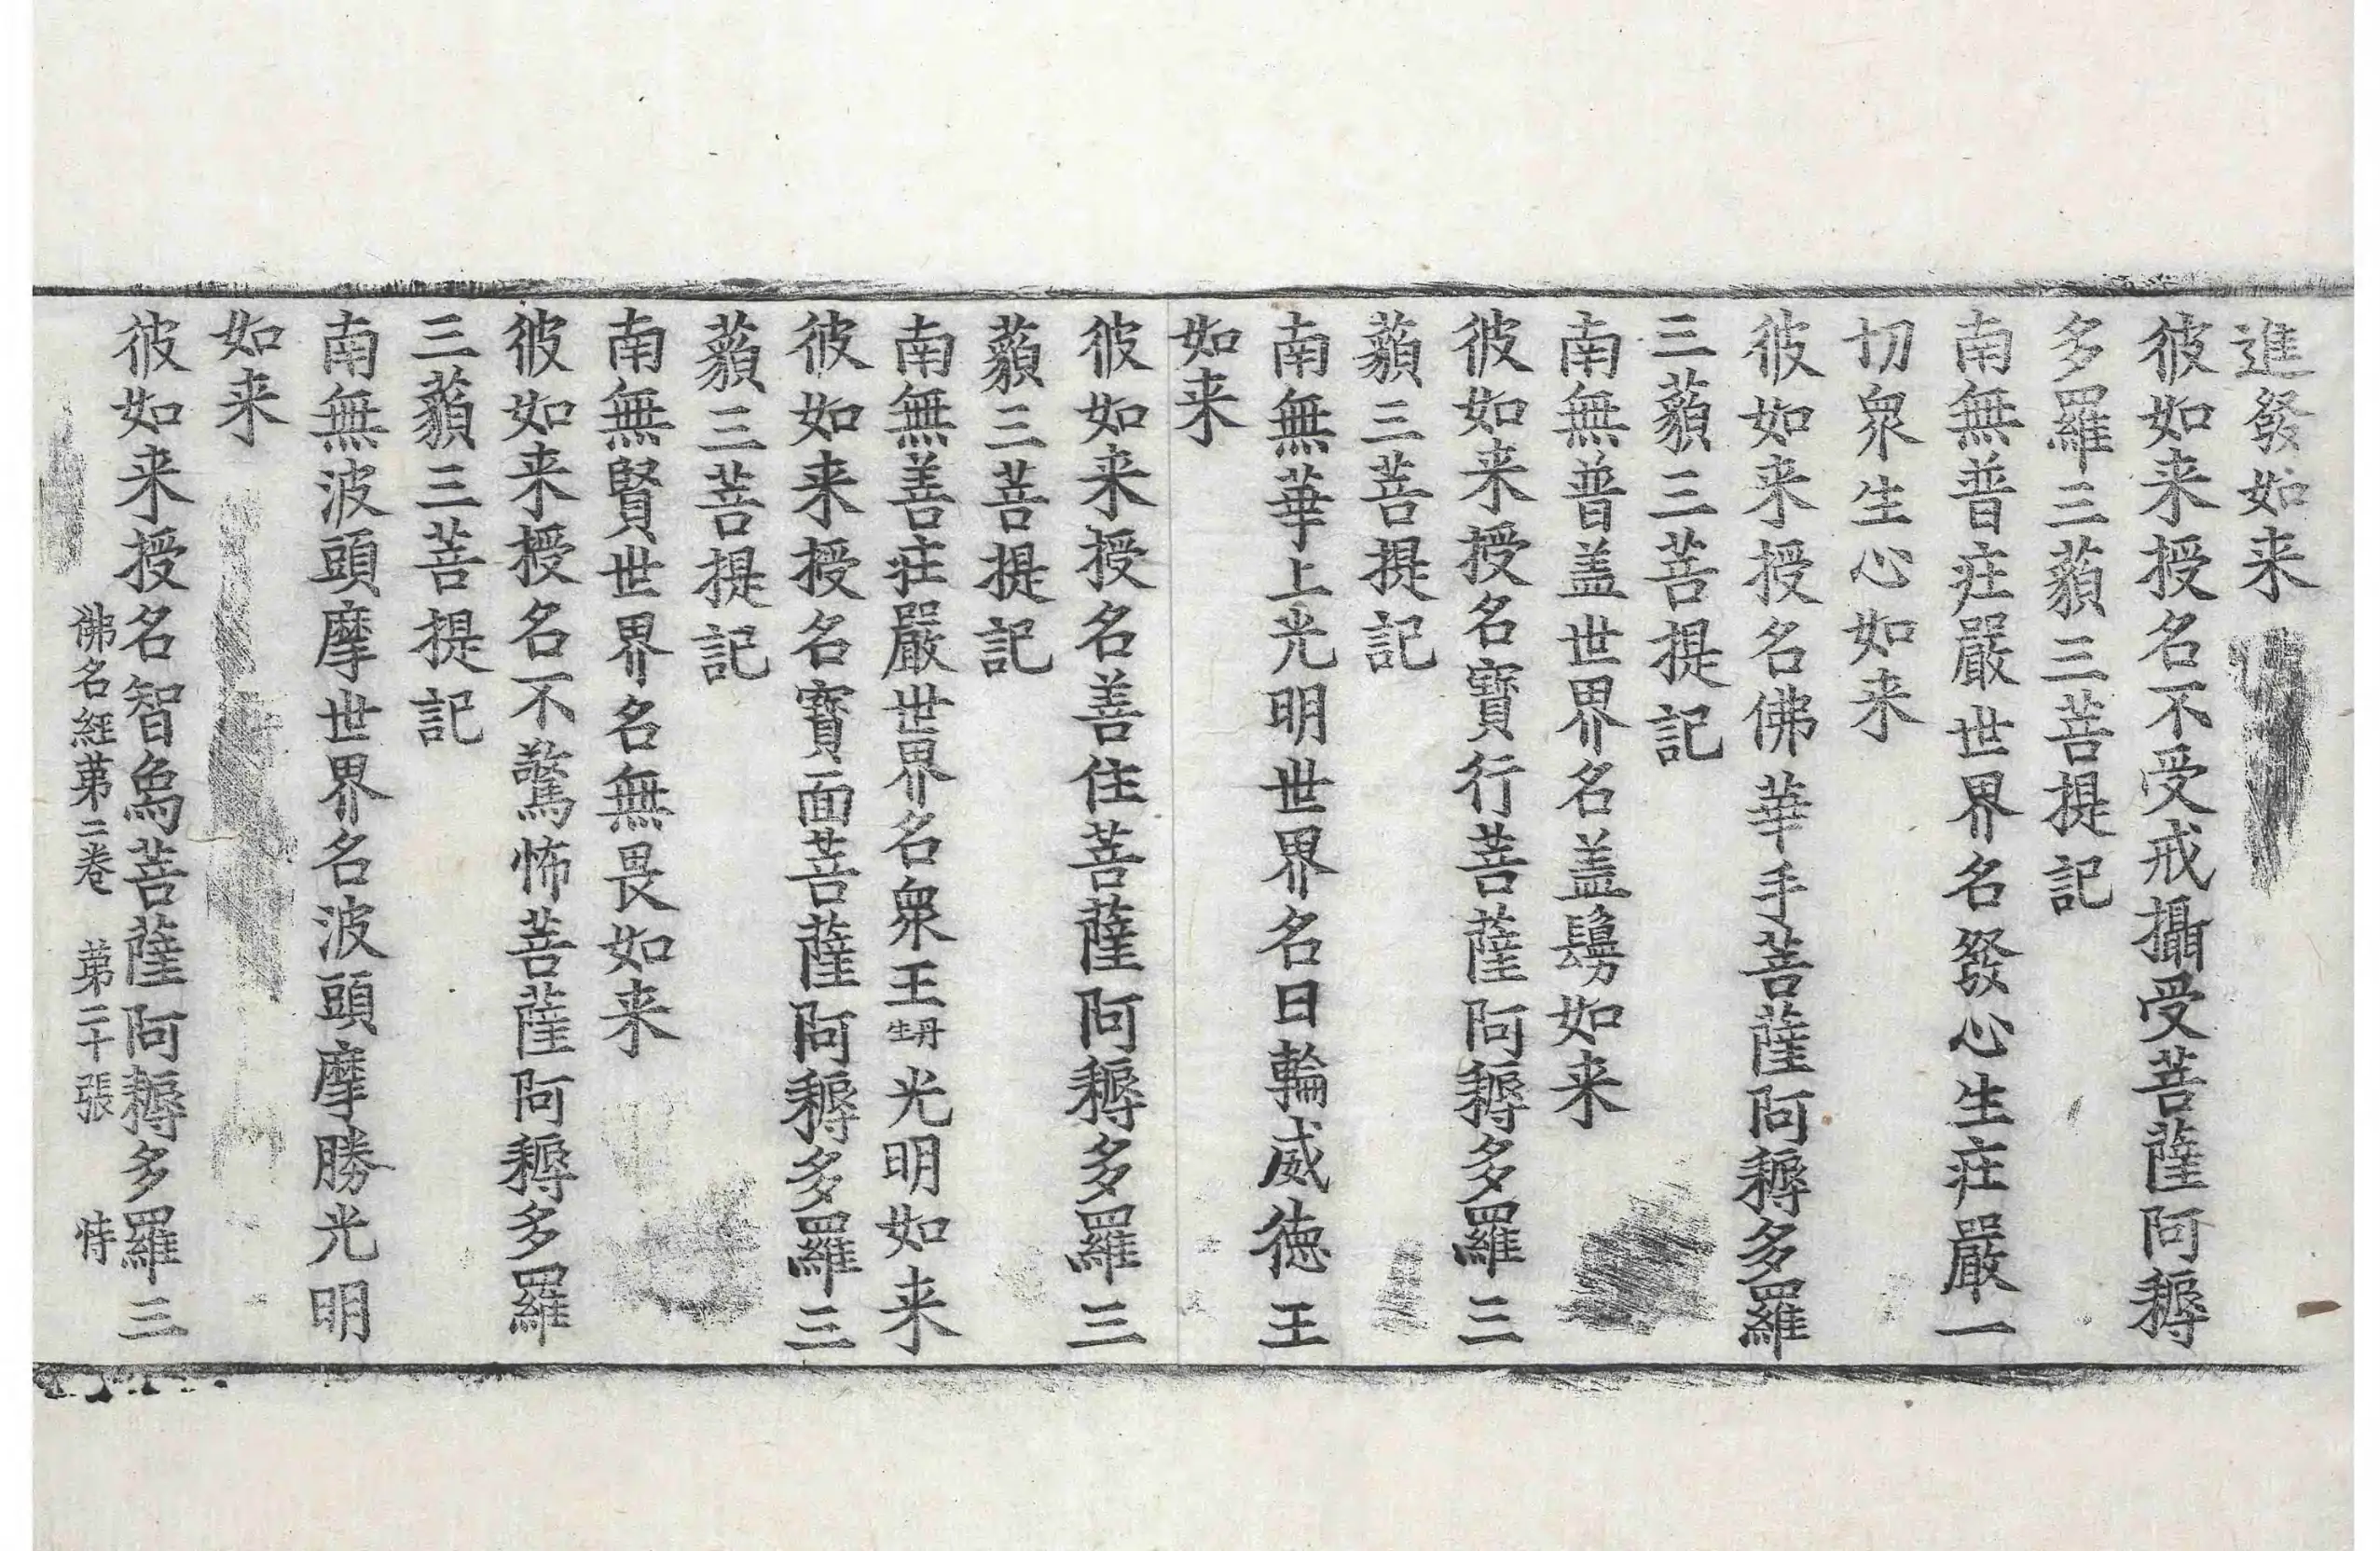 進發如来
彼如来授名不受戒攝受菩薩阿耨
多羅三藐三菩提記
南無普庄嚴世界名發心生庄嚴一
切衆生心如来
彼如来授名佛華手菩薩阿耨多羅
三藐三菩提記
南無普盖世界名盖鬘如来
彼如来授名寶行菩薩阿耨多羅三
藐三菩提記
南無華上光明世界名日輪威德王
如来
彼如来授名善住菩薩阿耨多羅三
藐三菩提記
南無善庄嚴世界名衆王光明如来
彼如来授名寶面菩薩阿耨多羅三
藐三菩提記
南無賢世界名無畏如来
彼如来授名不驚怖菩薩阿耨多羅
三藐三菩提記
南無波頭摩世界名波頭摩勝光明
如来
彼如来授名智㒵菩薩阿耨多羅三
佛名經苐二卷 苐二十張 恃